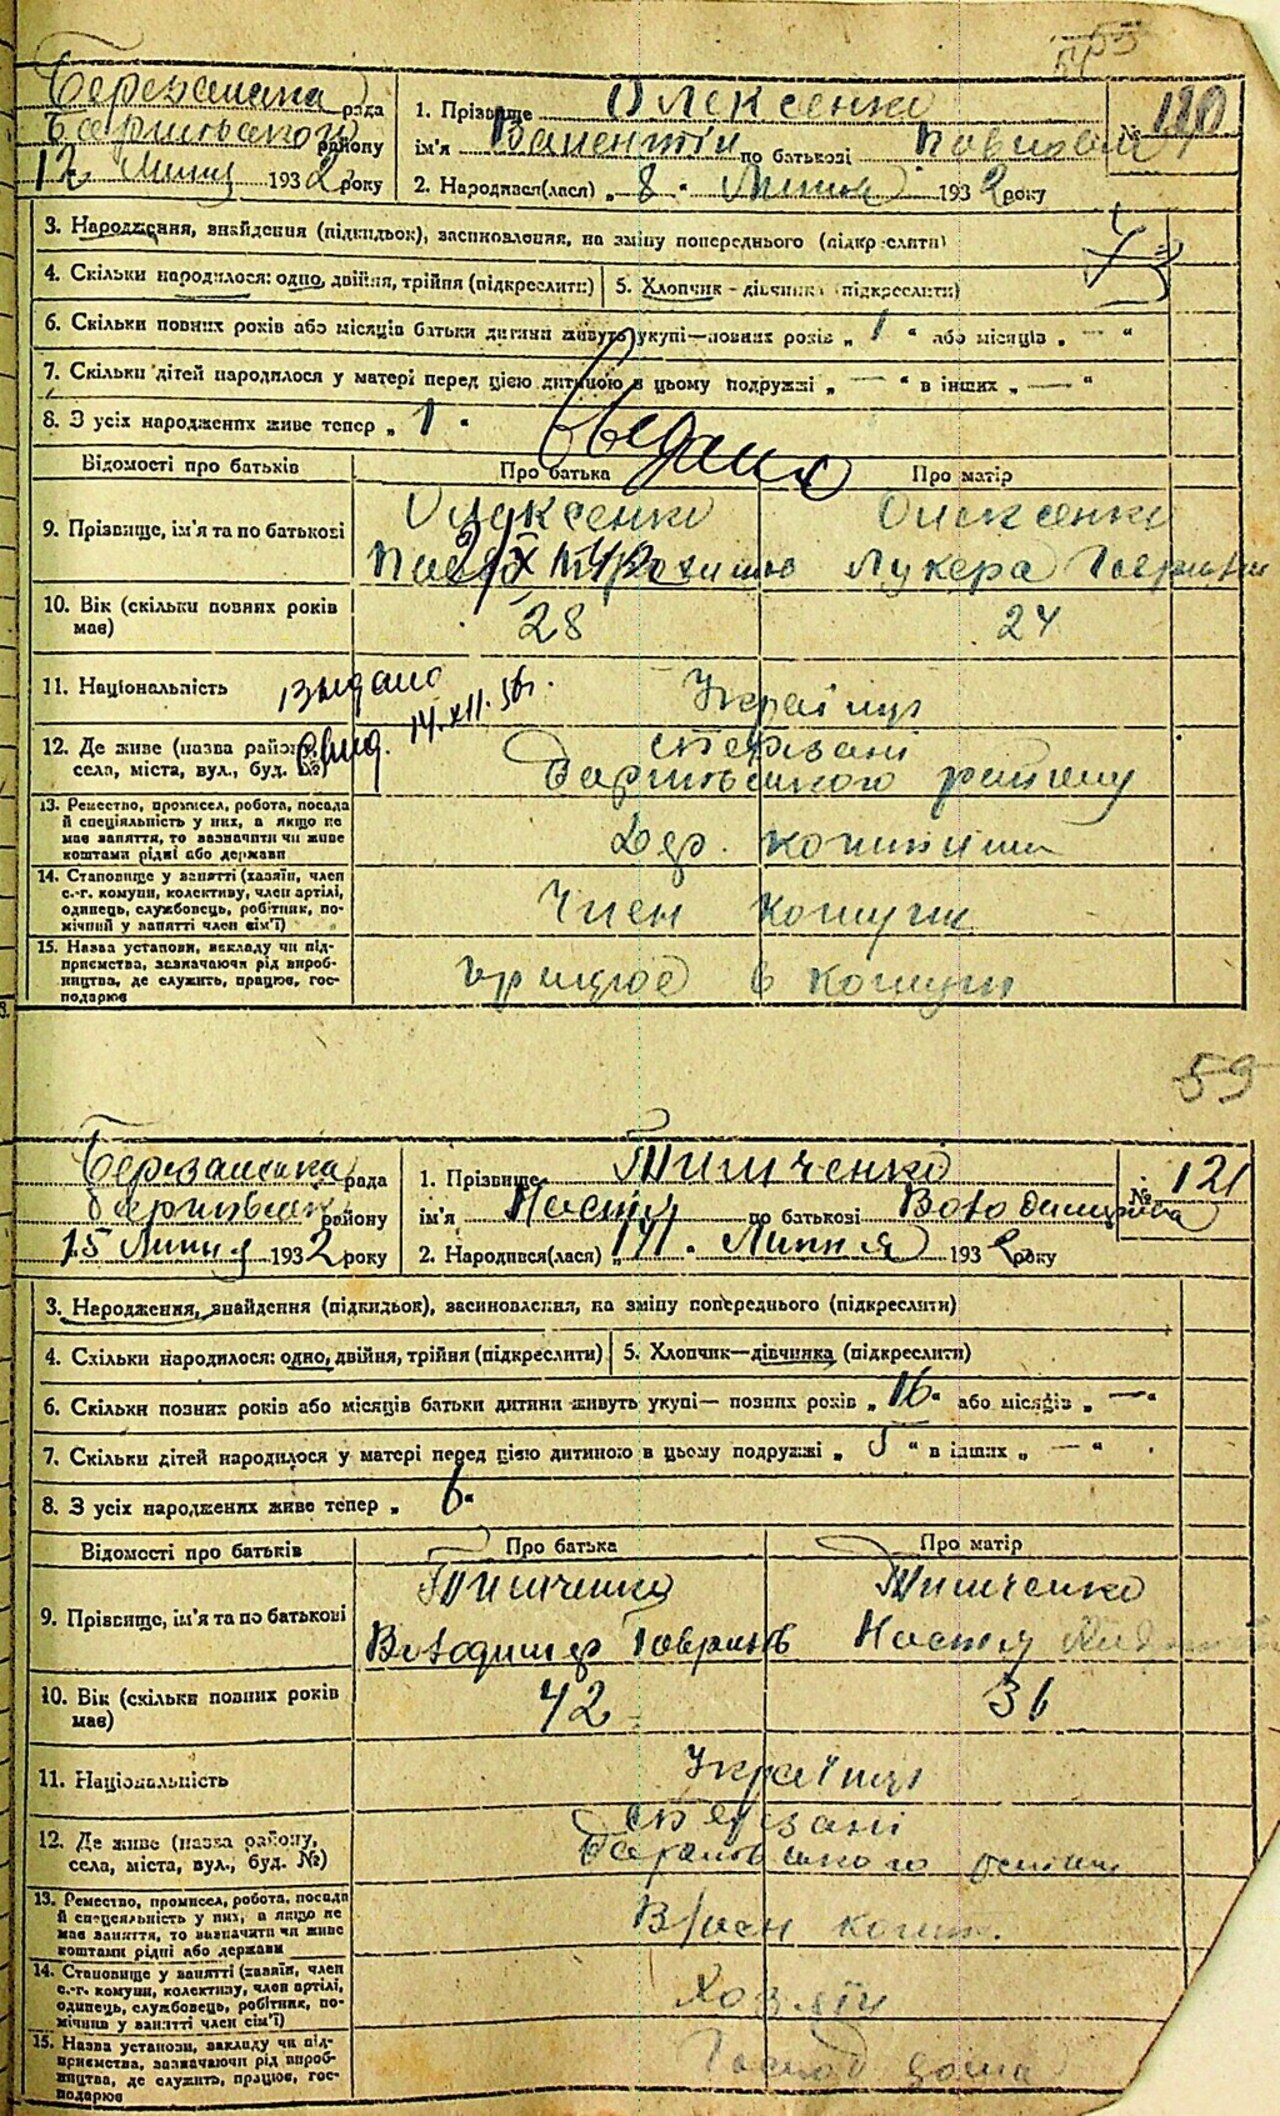 Березанська рада
району
12 Липня 1932 року
1. Прізвище Олексенко
ім'я Валентін по батькові Павлович
№ 120
2. Народився(лася) „ 8 “ Липня 1932 року
3. Народження, знайдення (підкидьок), засиновлення, на зміну попереднього (підкреслити)
4. Скільки народилося: одно, двійня, трійня (підкреслити)
5. Хлопчик - дівчинка (підкреслити)
6. Скільки повних років або місяців батьки дитини живуть укупі—повних років „ 1 “ або місяців „ — “
7. Скільки дітей народилося у матері перед цією дитиною в цьому подружжі „ — “ в інших „ — “
8. З усіх народжених живе тепер „ 1 “
Відомості про батьків
Про батька
Про матір
9. Прізвище, ім'я та по батькові
Олексенко
Олексенко
Лукера Гаврилів
10. Вік (скільки повних років
має)
28
24
11. Національність
Українці
Выдано
свид. 14.XII.56г.
12. Де живе (назва району,
села, міста, вул., буд. №)
Березані
району
13. Ремество, промисел, робота, посада
й спеціяльність у них, а якщо не
має заняття, то зазначити чи живе
коштами рідні або держави
14. Становище у занятті (хазяїн, член
с.-г. комуни, колективу, член артілі,
одинець, службовець, робітник, по-
мічний у занятті член сім'ї)
Член комуни
15. Назва установи, закладу чи під-
приємства, зазначаючи рід вироб-
ництва, де служить, працює, гос-
подарює
Працює в комуни
59
Березанська рада
району
15 Липня 1932 року
1. Прізвище Тимченко
ім'я Настя по батькові Володимирівна
№ 121
2. Народився(лася) „ 14 “ Липня 1932 року
3. Народження, знайдення (підкидьок), засиновлення, на зміну попереднього (підкреслити)
4. Скільки народилося: одно, двійня, трійня (підкреслити)
5. Хлопчик—дівчинка (підкреслити)
6. Скільки повних років або місяців батьки дитини живуть укупі— повних років „ 16 “ або місяців „ — “
7. Скільки дітей народилося у матері перед цією дитиною в цьому подружжі „ 5 “ в інших „ — “
8. З усіх народжених живе тепер „ 6 “
Відомості про батьків
Про батька
Про матір
9. Прізвище, ім'я та по батькові
Тимченко
Тимченко
Володимир Гаврилів
Настя
10. Вік (скільки повних років
має)
42
36
11. Національність
Українці
12. Де живе (назва району,
села, міста, вул., буд. №)
Березані
району
13. Ремество, промисел, робота, посада
й спеціяльність у них, а якщо не
має заняття, то визначити чи живе
коштами рідні або держави
14. Становище у занятті (хазяїн, член
с.-г. комуни, колективу, член артілі,
одинець, службовець, робітник, по-
мічник у занятті член сім'ї)
Хозяїн
15. Назва установи, закладу чи під-
приємства, зазначаючи рід вироб-
ництва, де служить, працює, гос-
подарює
дома